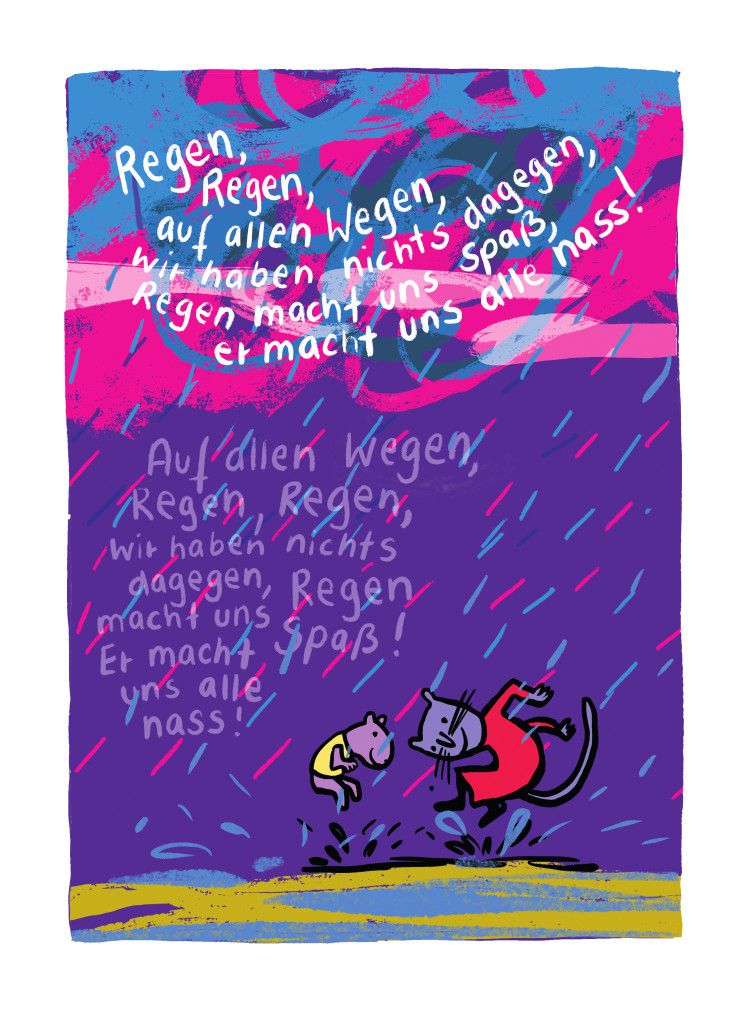 Regen,
Regen,
auf allen Wegen,
wir haben nichts dagegen,
Regen macht uns spaß,
er macht uns alle nass!
Auf allen Wegen,
Regen, Regen,
wir haben nichts
dagegen, Regen
macht uns Spaß!
Er macht
uns alle
nass!